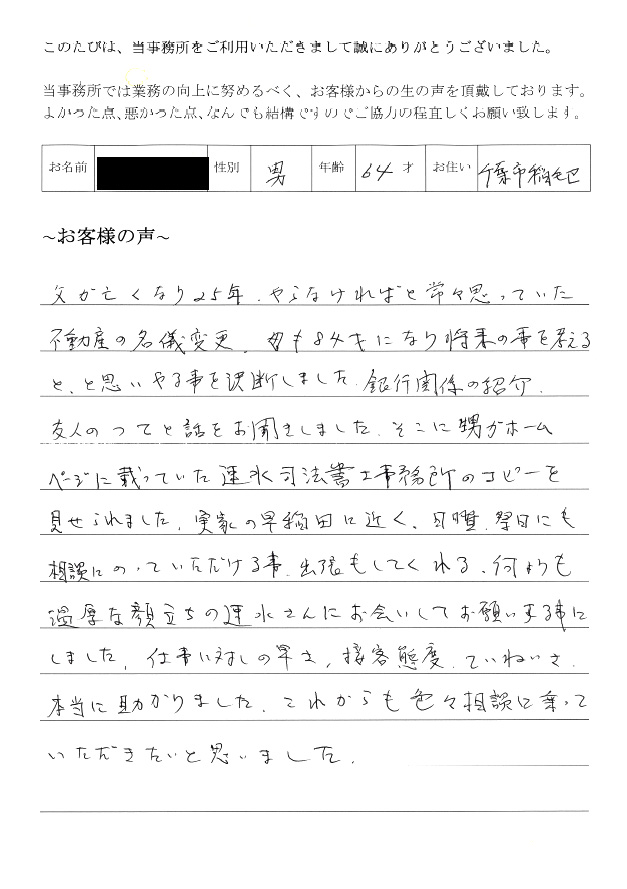 このたびは、当事務所をご利用いただきまして誠にありがとうございました。
当事務所では業務の向上に努めるべく、お客様からの生の声を頂戴しております。
よかった点、悪かった点、なんでも結構ですのでご協力の程宜しくお願い致します。
お名前 性別 男 年齢 64 才 お住い 千葉市稲毛区
~お客様の声~
父が亡くなり25年、やらなければと常々思っていた
不動産の名儀変更、母も84才になり将来の事を考える
と、と思いやる事を決断しました。銀行関係の紹介、
友人のつてと話をお聞きしました。そこに甥がホーム
ページに載っていた速水司法書士事務所のコピーを
見せられました。実家の早稲田に近く、日曜、祭日にも
相談にのっていただける事、出張もしてくれる、何よりも
温厚な顔立ちの速水さんにお会いしてお願いする事に
しました。仕事に対しの早さ、接客態度、ていねいさ、
本当に助かりました。これからも色々相談に乗って
いただきたいと思いました。